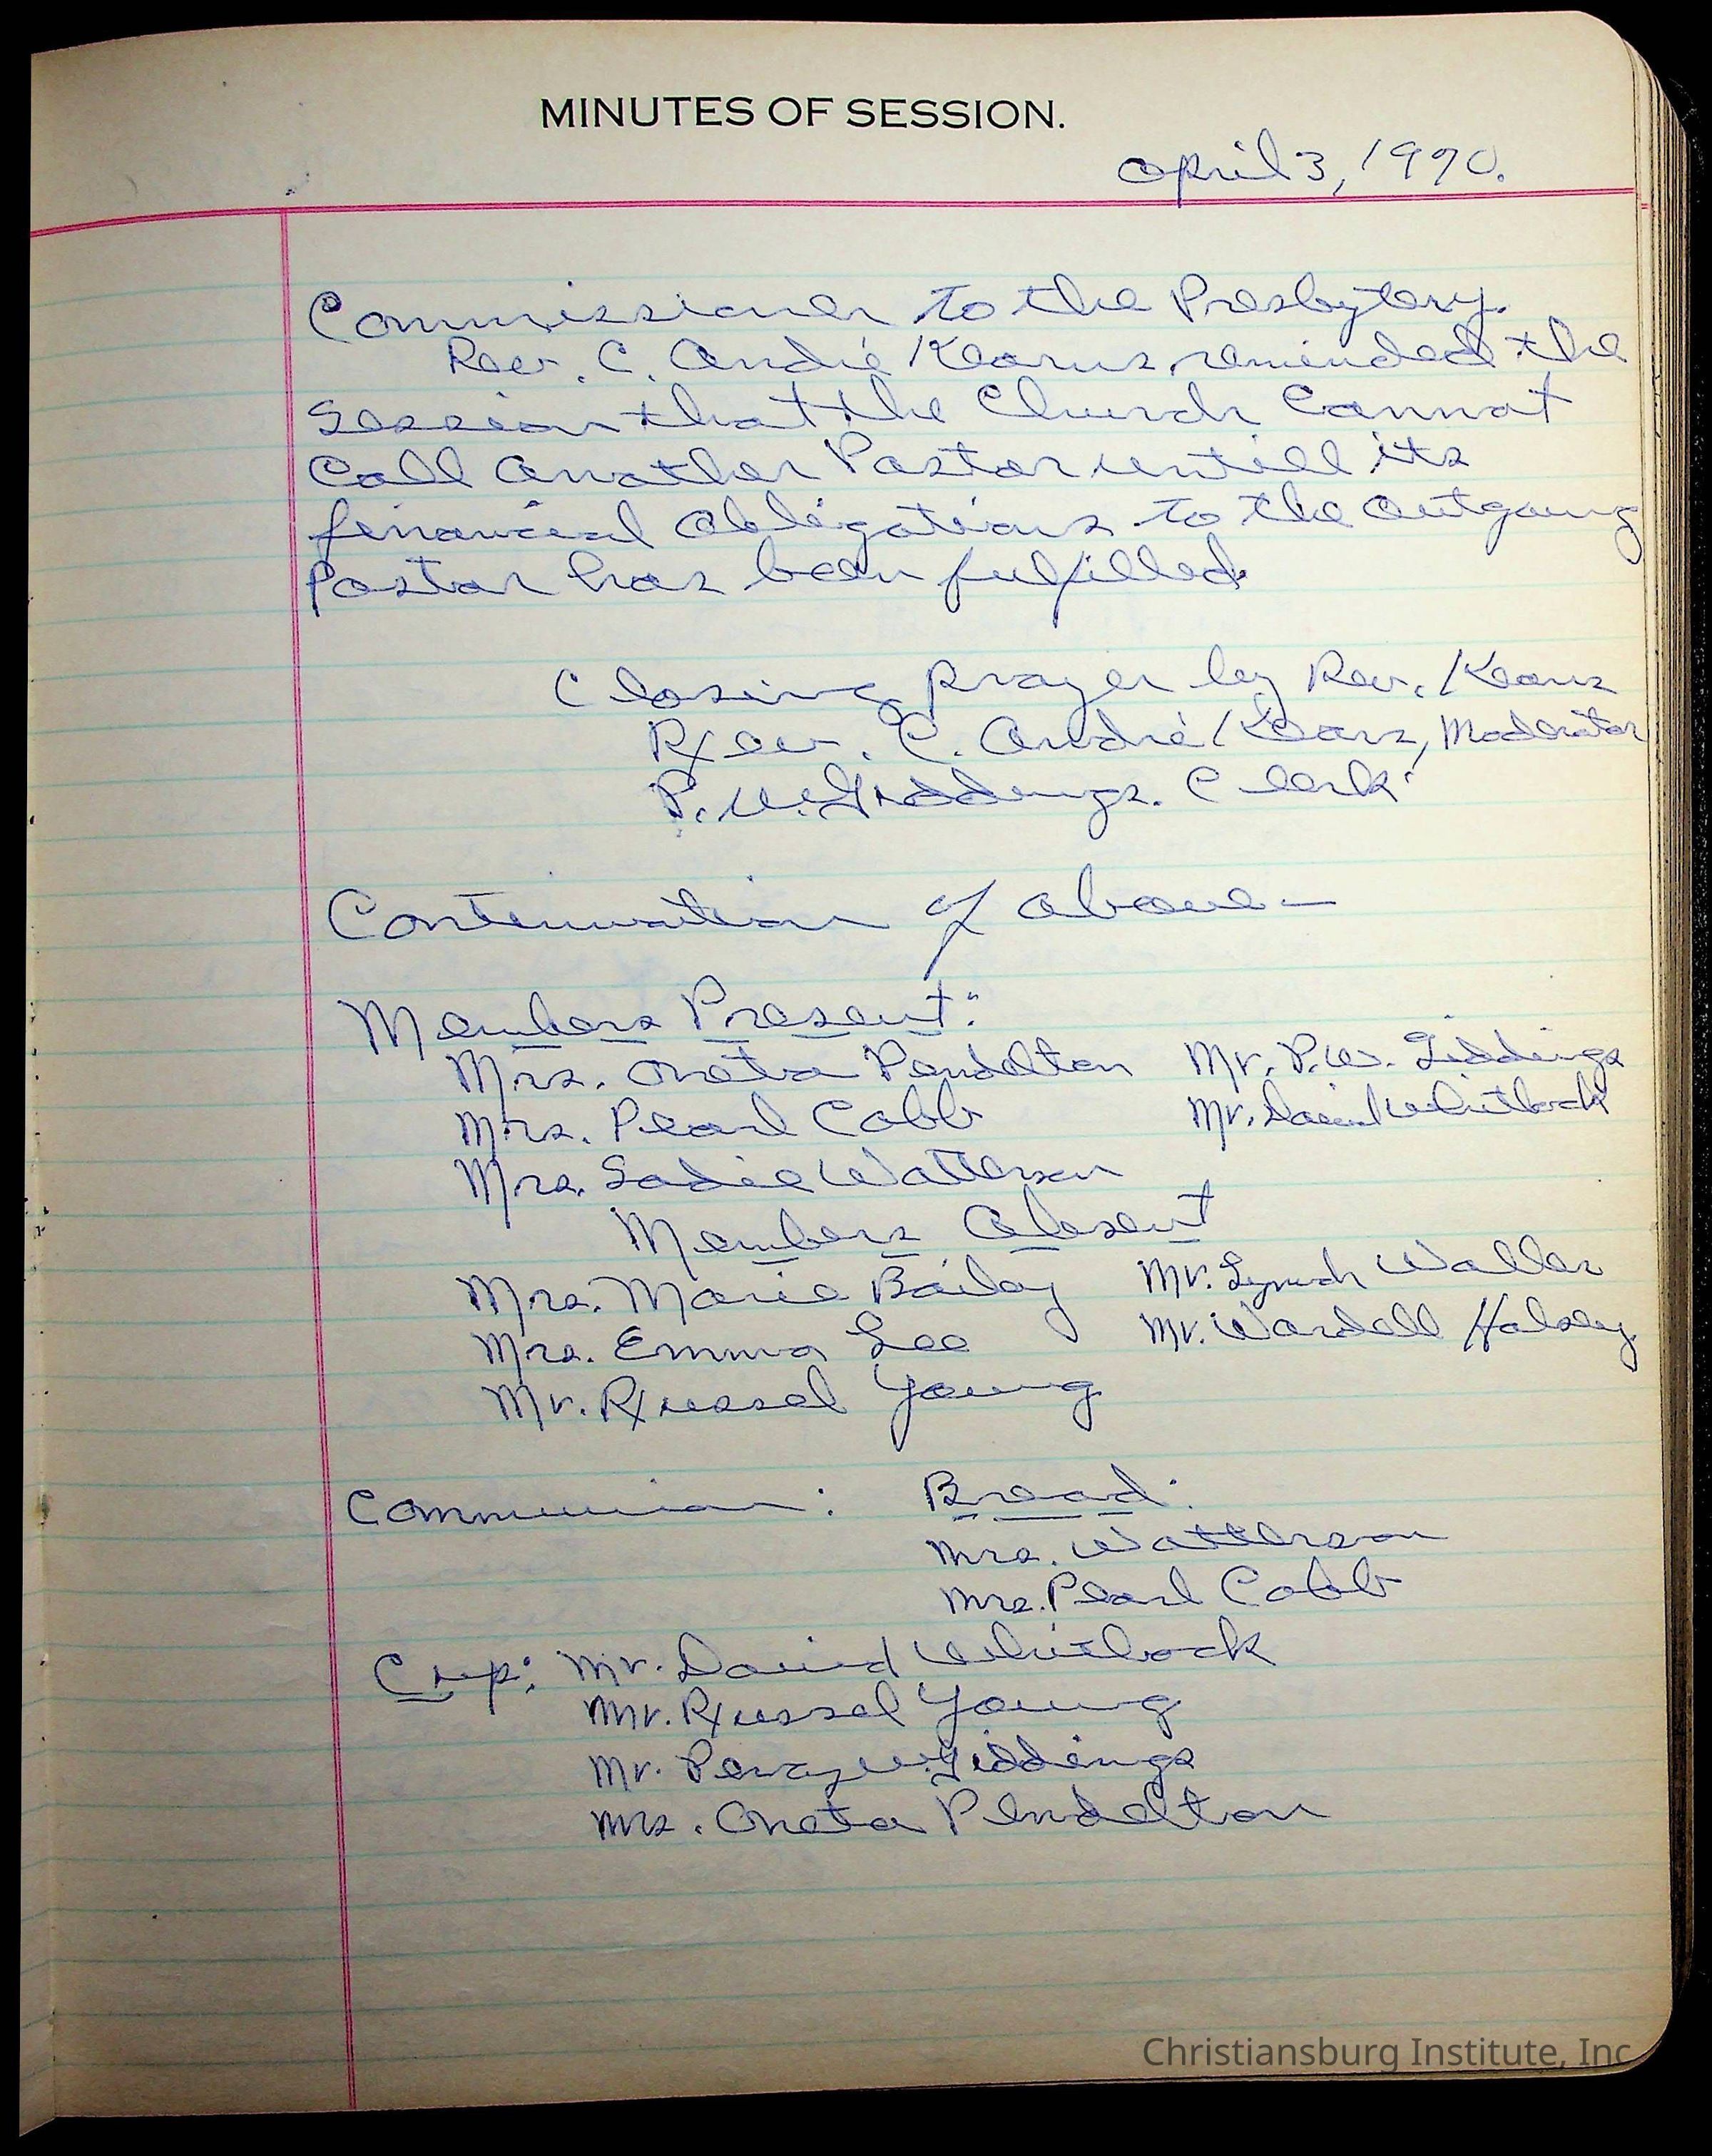 MINUTES OF SESSION.
April 3, 1970.
Commissioner to the Presbytery.
Rev. C. André Kearns reminded the
Session that the Church Cannot
Call Another Pastor untill its
financial obligations to the outgoing
Pastor has been fulfilled.
Closing prayer by Rev. Kearns
Rev. C. André Kearns, Moderator
P. W. Giddings. Clerk.
Continuation of above-
Members Present:
Mrs. Oneta Pendelton Mr. P.W. Giddings
Mrs. Pearl Cobb Mr. David Whitlock
Mrs. Sadie Watterson
Members Absent
Mrs. Marie Bailey Mr. Lynch Waller
Mrs. Emma Lee Mr. Wardell Halsey
Mr. Russel Young
Communion: Bread:
Mrs. Watterson
Mrs. Pearl Cobb
Cup: Mr. David Whitlock
Mr. Russel Young
Mr. W. Giddings
Mrs. Oneta Pendelton
Christiansburg Institute, Inc